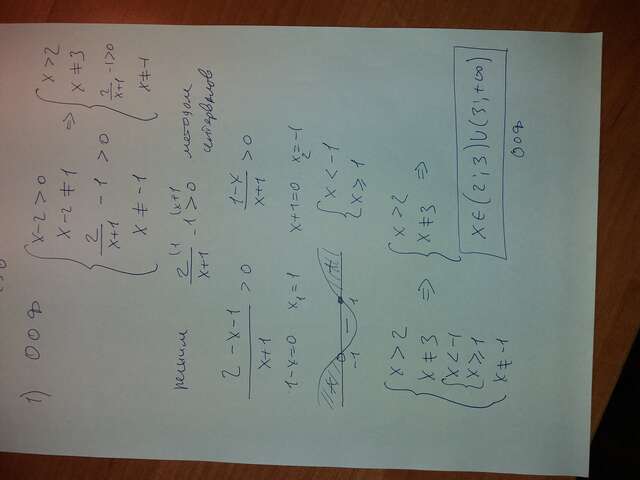 1) ООФ
{ x-2>0
x-2≠1
2/(x+1) - 1 > 0
x≠-1
⇒ { x>2
x≠3
2/(x+1) -1>0
x≠-1
решим 2(1/(x+1) -1(x+1 > 0 методом
интервалов
(2-x-1)/(x+1) > 0 (1-x)/(x+1) > 0
1-x=0 x₁=1 x+1=0 x₂=-1
+ - +
-1 1
{ x<-1
x⩾1
{ x>2
x≠3
{ x<-1
x⩾1
x≠-1
⇒ { x>2
x≠3 ⇒
x∈(2;3)∪(3;+∞)
ООФ